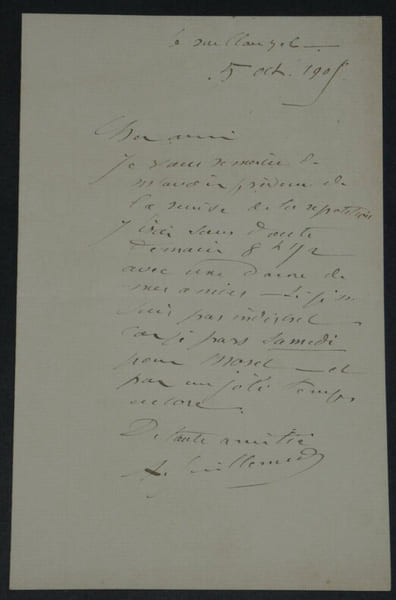 6 rue Clauzel
5 oct. 1905
Cher ami
Je vous remercie de
m'avoir prévenu de
la remise de la répétition
J'irai sans doute
demain 8 h 1/2
avec une dame de
mes amies — Si je ne
suis pas indiscret
car je pars Samedi
pour Moret — et
par un joli temps
encore.
De toute amitié
A. Guillemet